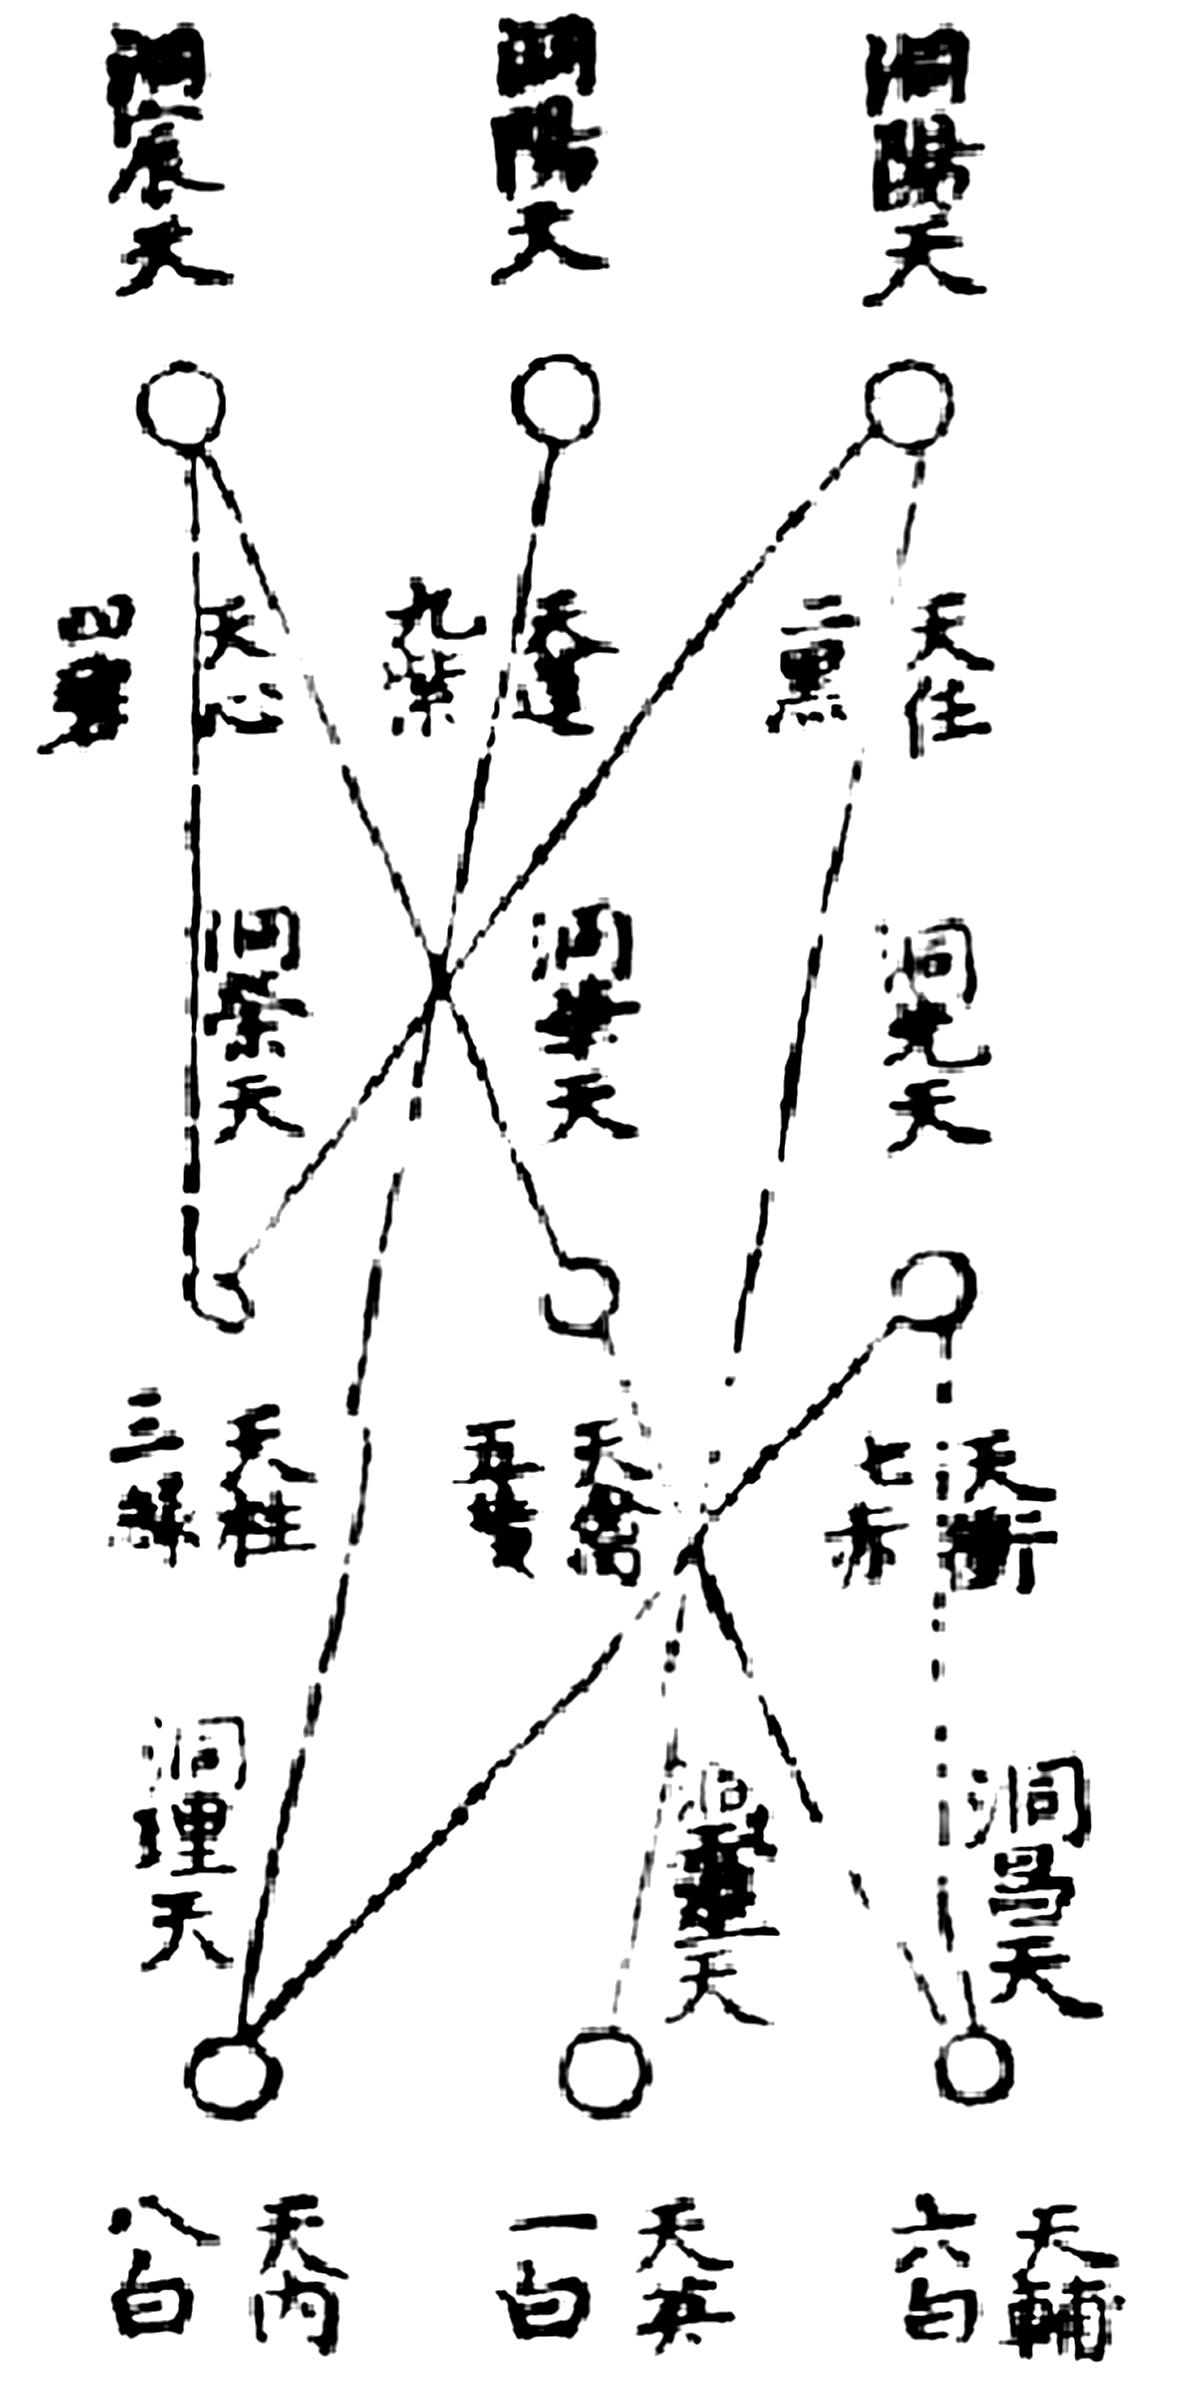 洞陽天
陽天
洞天
天任
二黑
天蓬
九紫
天心
四
洞光天
洞華天
洞榮天
天衝
七赤
天禽
五黃
天柱
三綠
洞昌天
洞天
洞理天
天輔
六白
天英
一白
天內
八白